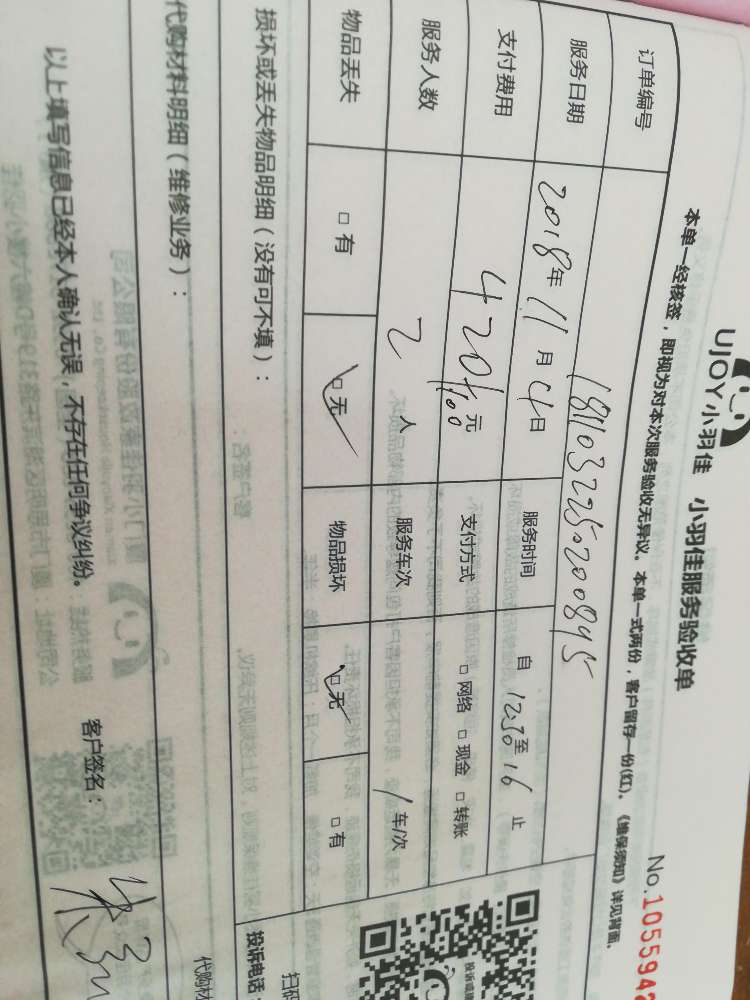 UJOY小羽佳 小羽佳服务验收单
No.1055948
本单一经核签，即视为对本次服务验收无异议。本单一式两份，客户留存一份(红)。《维保须知》详见背面。
订单编号 1811032250200845
服务日期 2018年11月4日 服务时间 自12:30至16止
支付费用 420/00元 支付方式 □网络 □现金 □转账
服务人数 2人 服务车次 1车/次
物品丢失 □有 □无 物品损坏 □无 □有
损坏或丢失物品明细（没有可不填）：
代购材料明细（维修业务）：
以上填写信息已经本人确认无误，不存在任何争议纠纷。 客户签名：
投诉电话：
扫码
代购材